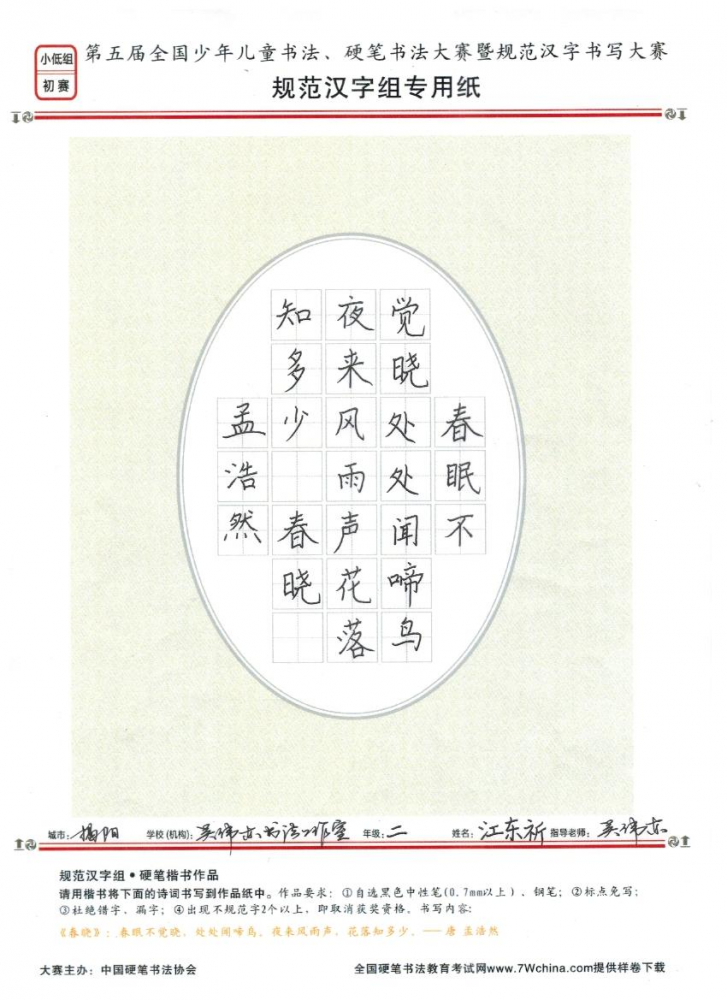 小低组
初赛
第五届全国少年儿童书法、硬笔书法大赛暨规范汉字书写大赛
规范汉字组专用纸
春眠不
觉晓处处闻啼鸟
夜来风雨声花落
知多少 春晓
孟浩然
城市：揭阳 学校(机构)：吴伟亦书法工作室 年级：二 姓名：江东祈 指导老师：吴伟亦
规范汉字组•硬笔楷书作品
请用楷书将下面的诗词书写到作品纸中。作品要求：①自选黑色中性笔(0.7mm以上)、钢笔；②标点免写；
③杜绝错字、漏字；④出现不规范字2个以上，即取消获奖资格。书写内容：
《春晓》：春眠不觉晓，处处闻啼鸟。夜来风雨声，花落知多少。——唐 孟浩然
大赛主办：中国硬笔书法协会
全国硬笔书法教育考试网www.7Wchina.com提供样卷下载